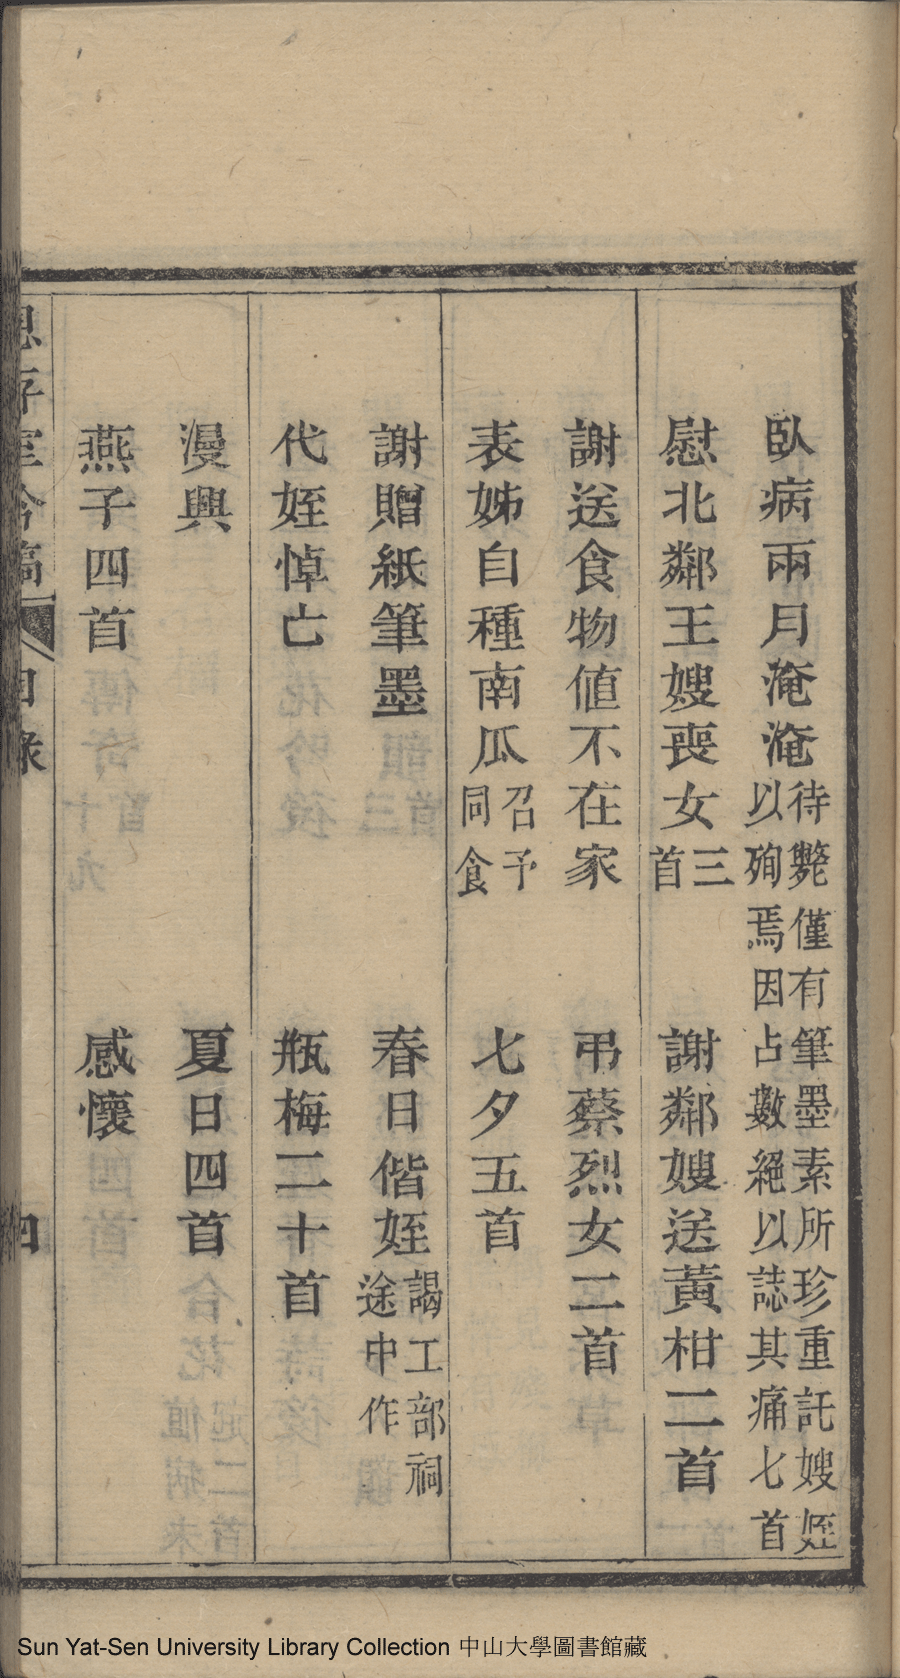 臥病兩月淹淹待斃僅有筆墨素所珍重託嫂姪以殉焉因占數絕以誌其痛七首
慰北鄰王嫂喪女三首　謝鄰嫂送黃柑二首
謝送食物值不在家　弔蔡烈女二首
表姊自種南瓜召予同食　七夕五首
謝贈紙筆墨　春日偕姪謁工部祠途中作
代姪悼亡　瓶梅二十首
漫興　夏日四首
燕子四首　感懷
思存室吟稿　目錄　四
Sun Yat-Sen University Library Collection 中山大學圖書館藏